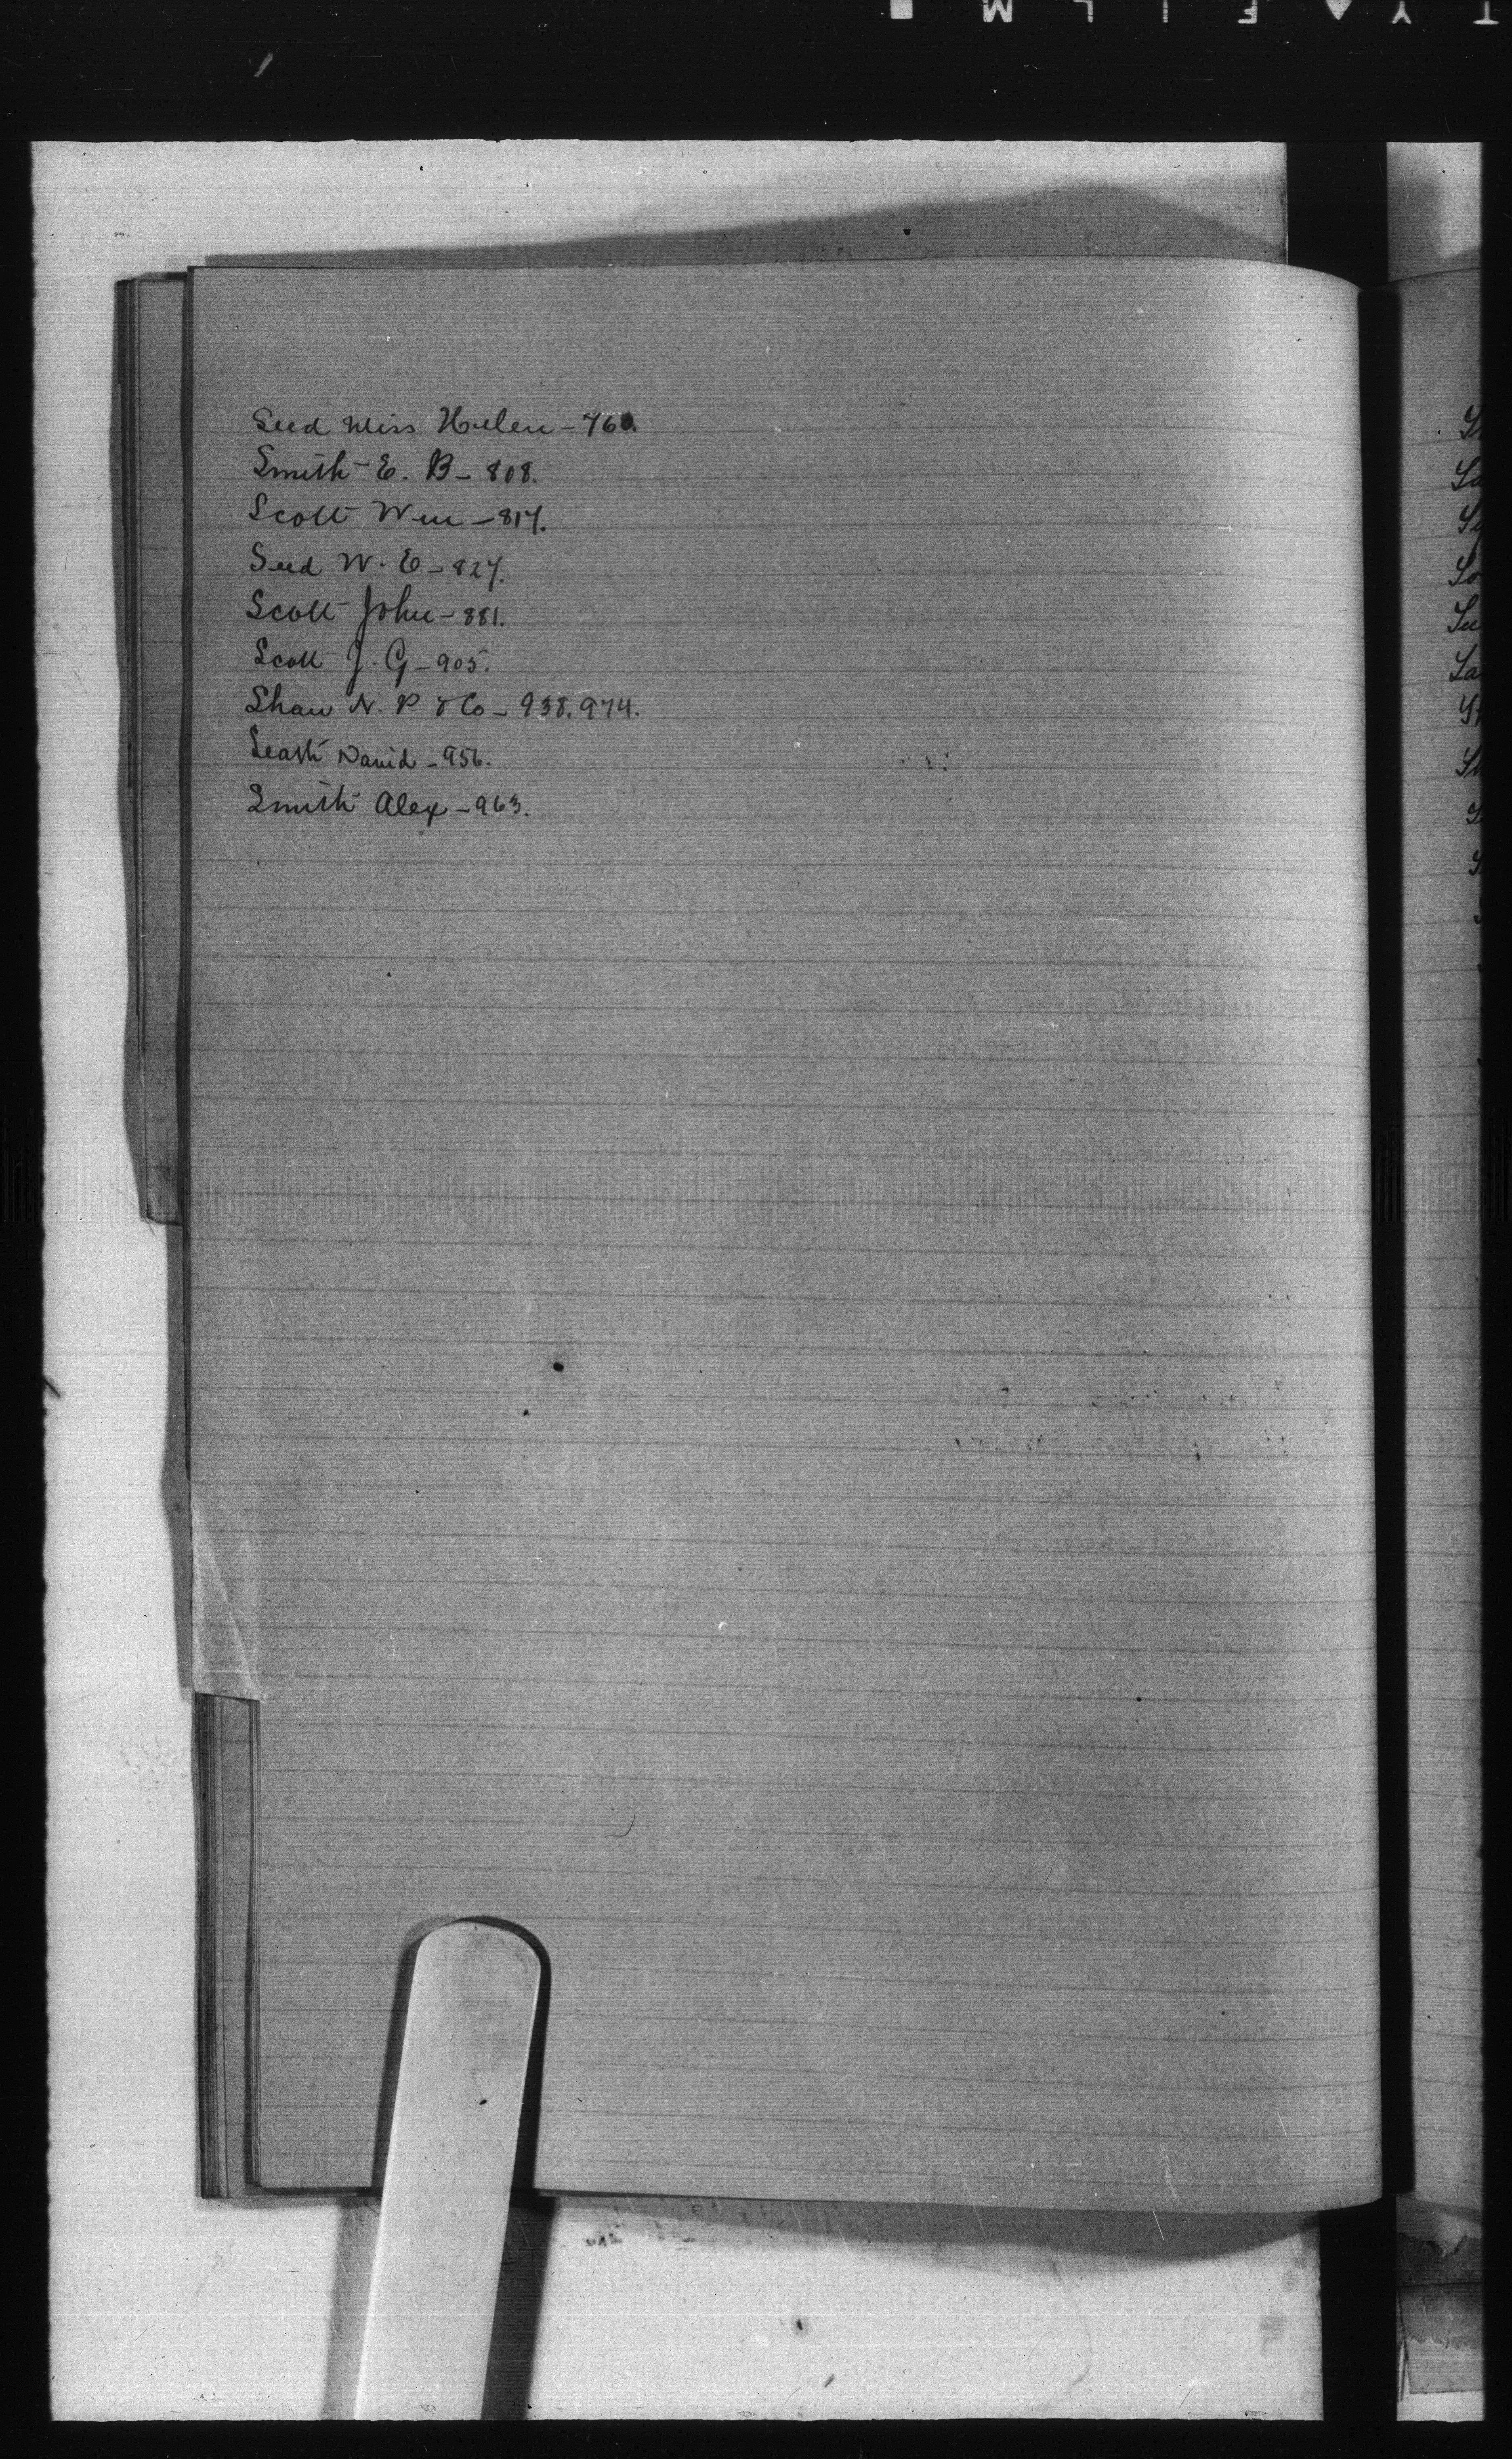 Seed Miss Helen - 760.
Smith E. B - 808.
Scott Wm - 817.
Seed W. E - 827.
Scott John - 881.
Scott J. G - 905.
Shaw N. P. & Co - 938. 974.
Seath David - 956.
Smith Alex - 963.